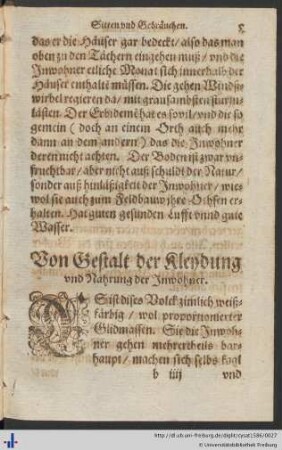 Sitten vnd Gebräuchen.
das er die Häuser gar bedeckt / also das man
oben zu den Tächern eingehen muß / vnd die
Inwohner etliche Monat sich innerhalb der
Häuser enthaltē müssen. Die gehen Windß-
wirbel regieren da / mit grausambsten sturm-
lüsten. Der Erbidemē hat es sovil / vnd die so
gemein ( doch an einem Orth auch mehr
dann an dem andern ) das die Inwohner
deren nicht achten. Der Boden ist zwar vn-
fruchtbar / aber nicht auß schuldt der Natur /
sonder auß hinläßigkeit der Inwohner / wie-
wol sie auch zum Feldbauw ihre Ochsen er-
halten. Hat guten gesunden Lufft vnnd gute
Wasser.
Von Gestalt der Kleydung
vnd Nahrung der Inwohner.
ES ist dises Volck zimlich weiß-
färbig / wol proportionierter
Glidmassen. Sie die Inwoh-
ner gehen mehrertheils bar-
haupt / machen sich selbs kagl
b iiij vnd
http://dl.ub.uni-freiburg.de/diglit/cysat1586/0027
© Universitätsbibliothek Freiburg